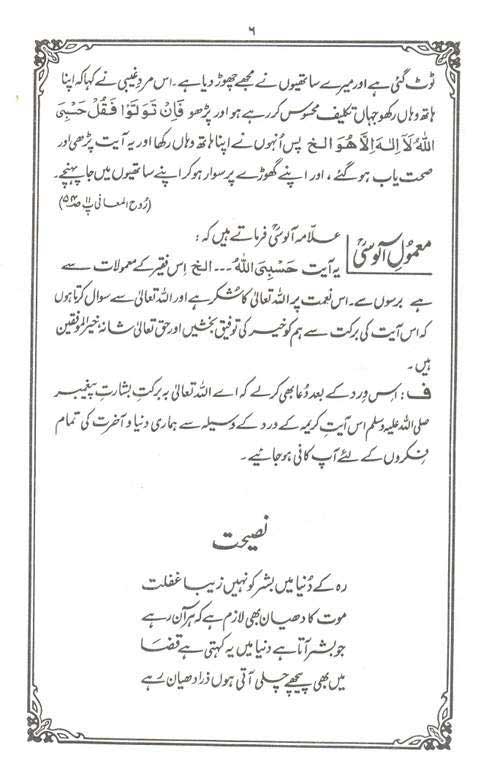 ۶
ٹوٹ گئی ہے اور میرے ساتھیوں نے مجھے چھوڑ دیا ہے۔ اس مردِ غیبی نے کہا کہ اپنا
ہاتھ وہاں رکھو جہاں تکلیف محسوس کر رہے ہو اور پڑھو فَاِنْ تَوَلَّوْا فَقُلْ حَسْبِیَ
اللّٰهُ لَآ اِلٰهَ اِلَّا هُوَ الخ پس اُنہوں نے اپنا ہاتھ وہاں رکھا اور یہ آیت پڑھی اور
صحت یاب ہو گئے، اور اپنے گھوڑے پر سوار ہو کر اپنے ساتھیوں میں جا پہنچے۔
(رُوح المعانی پ۱۱ ص۵۴)
معمولِ آلوسیؒ
علّامہ آلوسیؒ فرماتے ہیں کہ :
یہ آیت حَسْبِیَ اللّٰهُ ... الخ اِس فقیر کے معمولات سے
ہے برسوں سے۔ اس نعمت پر اللہ تعالیٰ کا شکر ہے اور اللہ تعالیٰ سے سوال کرتا ہوں
کہ اس آیت کی برکت سے ہم کو خیر کی توفیق بخشیں اور حق تعالیٰ شانہٗ خیر الموفقین
ہیں۔
ف : اس وِرد کے بعد دُعا بھی کرلے کہ اے اللہ تعالیٰ بہ برکتِ بشارتِ پیغمبر
صلی اللہ علیہ وسلم اس آیتِ کریمہ کے ورد کے وسیلہ سے ہماری دنیا و آخرت کی تمام
فِکروں کے لئے آپ کافی ہو جائیے۔
نصیحت
رہ کے دُنیا میں بشر کو نہیں زیبا غفلت
موت کا دھیان بھی لازم ہے کہ ہر آن رہے
جو بشر آتا ہے دنیا میں یہ کہتی ہے قضا
میں بھی پیچھے چلی آتی ہوں ذرا دھیان رہے